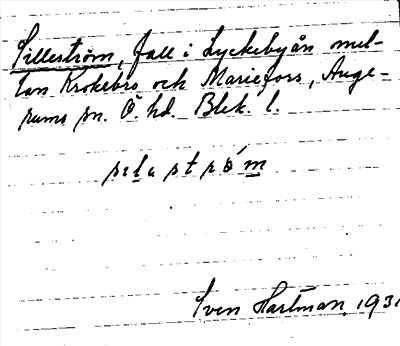 Silleström, fall i Lyckebyån mel-
lan Krokebro och Mariefors, Auge-
rums sn. Ö. hd. Blek. l.
Sven Hartman 1931